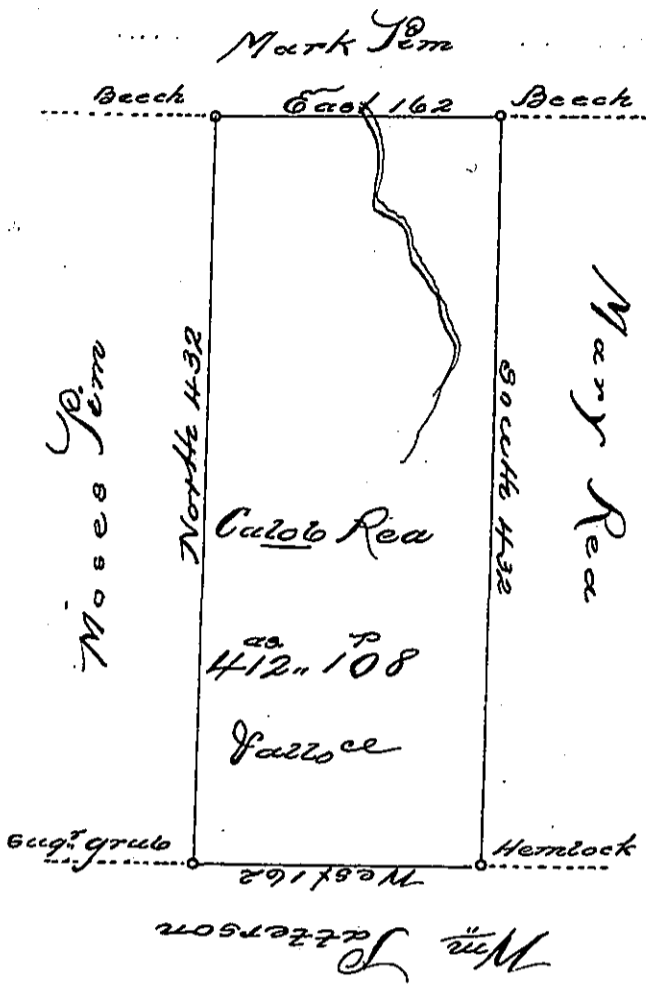 Mark Pim
Beech
East 162
Beech
Moses Pim
North 432
South 432
Mary Rea
Calob Rea
as. P
412,, 108
& allo ce
sugr. grub
West 162
Hemlock
Wm Patterson